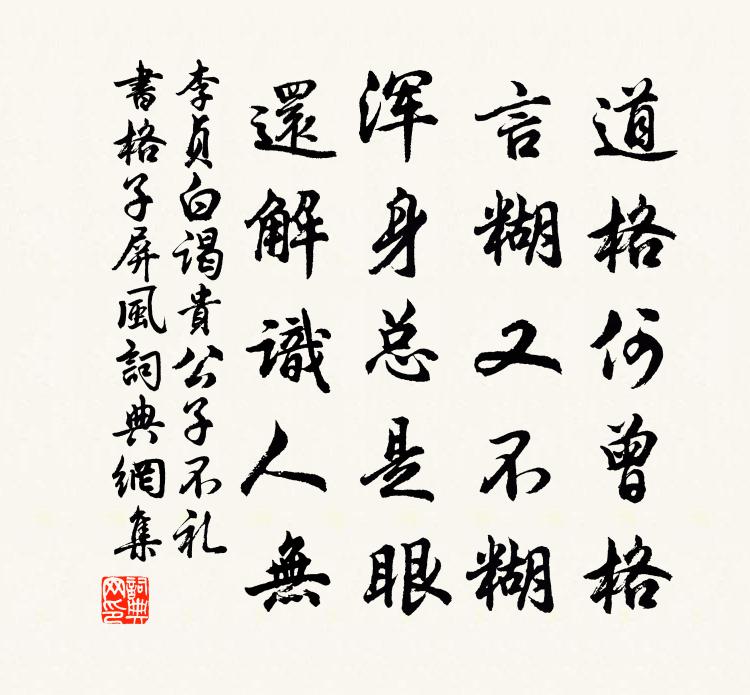 道格何曾格
言糊又不糊
浑身总是眼
還解識人無
李貞白谒貴公子不礼
書格子屏風詞典網集
詞典
网印